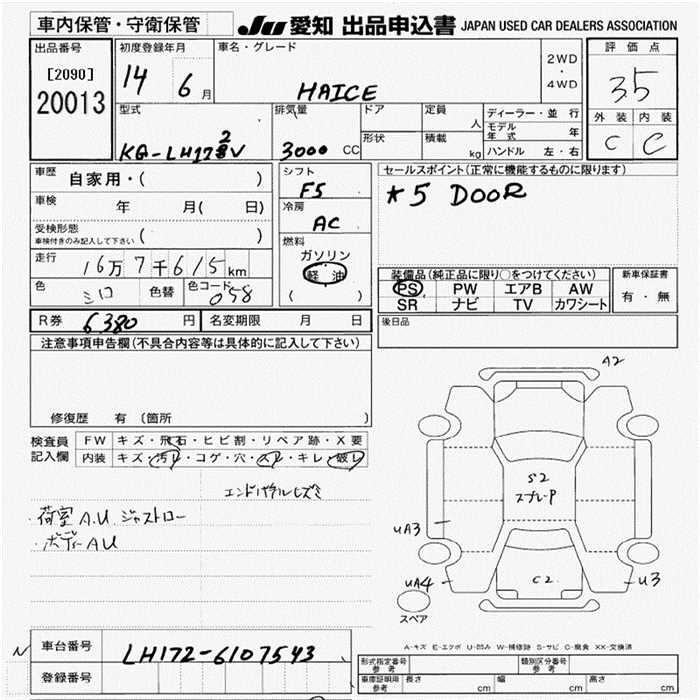 車内保管・守衛保管
JU 愛知 出品申込書 JAPAN USED CAR DEALERS ASSOCIATION
出品番号
[2090]
20013
初度登録年月
14 6 月
車名・グレード
HAICE
2WD
・
4WD
評価点
35
外装 内装
C C
型式
KG-LH172V
排気量
3000 CC
ドア
形状
定員
人
積載
kg
ディーラー・並行
モデル年式 年
ハンドル 左・右
車歴 自家用・( )
車検 年 月( 日)
受検形態
車検付きのみ記入して下さい ( )
走行 16万7千615km
色 シロ 色替 色コード 058
シフト
F5
冷房
AC
燃料
ガソリン
軽油
( )
セールスポイント(正常に機能するものに限ります)
*5 DOOR
装備品(純正品に限り○をつけてください)
PS PW エアB AW
SR ナビ TV カワシート
新車保証書
有・無
R券 6380 円 名変期限 月 日
後日品
注意事項申告欄(不具合内容等は具体的に記入して下さい)
修復歴 有 (箇所 )
検査員
記入欄
FW キズ・飛石・ヒビ割・リペア跡・X要
内装 キズ・汚レ・コゲ・穴・スレ・キレ・破レ
荷室A.U ジャストロー
ボディーAU
A2
S2
スプレーP
UA3
UA4
C2
U3
スペア
A-キズ E-エクボ U-凹み W-補修跡 S-サビ C-腐食 XX-交換済
N
車台番号 LH172-6107543
登録番号
形式指定番号
参考
類別区分番号
参考
車庫証明用
参考
長さ cm 幅 cm 高さ cm